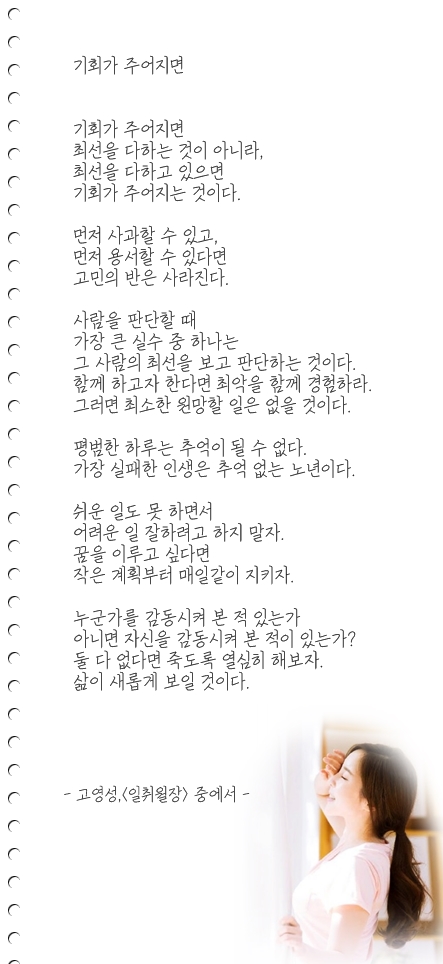 기회가 주어지면
기회가 주어지면
최선을 다하는 것이 아니라,
최선을 다하고 있으면
기회가 주어지는 것이다.
먼저 사과할 수 있고,
먼저 용서할 수 있다면
고민의 반은 사라진다.
사람을 판단할 때
가장 큰 실수 중 하나는
그 사람의 최선을 보고 판단하는 것이다.
함께 하고자 한다면 최악을 함께 경험하라.
그러면 최소한 원망할 일은 없을 것이다.
평범한 하루는 추억이 될 수 없다.
가장 실패한 인생은 추억 없는 노년이다.
쉬운 일도 못 하면서
어려운 일 잘하려고 하지 말자.
꿈을 이루고 싶다면
작은 계획부터 매일같이 지키자.
누군가를 감동시켜 본 적 있는가
아니면 자신을 감동시켜 본 적이 있는가?
둘 다 없다면 죽도록 열심히 해보자.
삶이 새롭게 보일 것이다.
- 고영성,<일취월장> 중에서 -